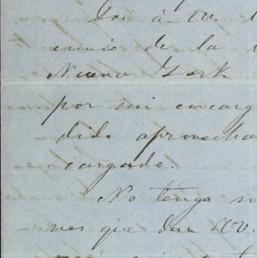 Doi á VV.
envio de la
Nueva York
por mi encarg
dido aprovecha
cargado.
No tengo
nes que dan VV.